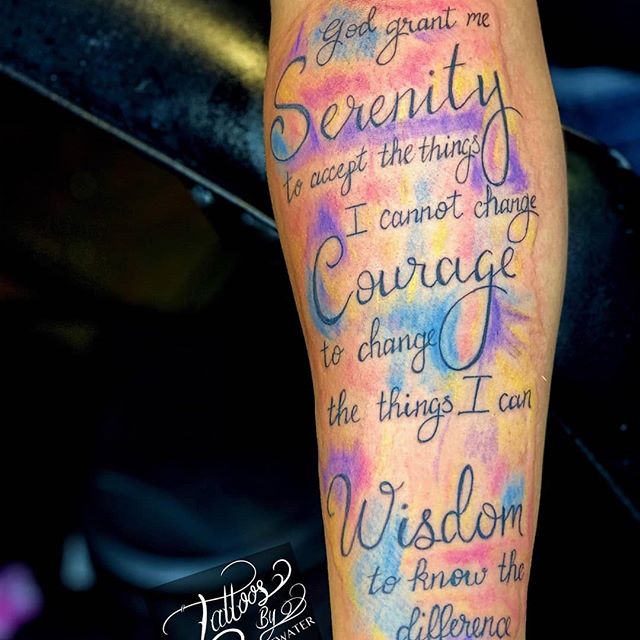 God grant me
Serenity
to accept the things
I cannot change
Courage
to change
the things I can
Wisdom
to know the
difference
Tattoos
By
WATER